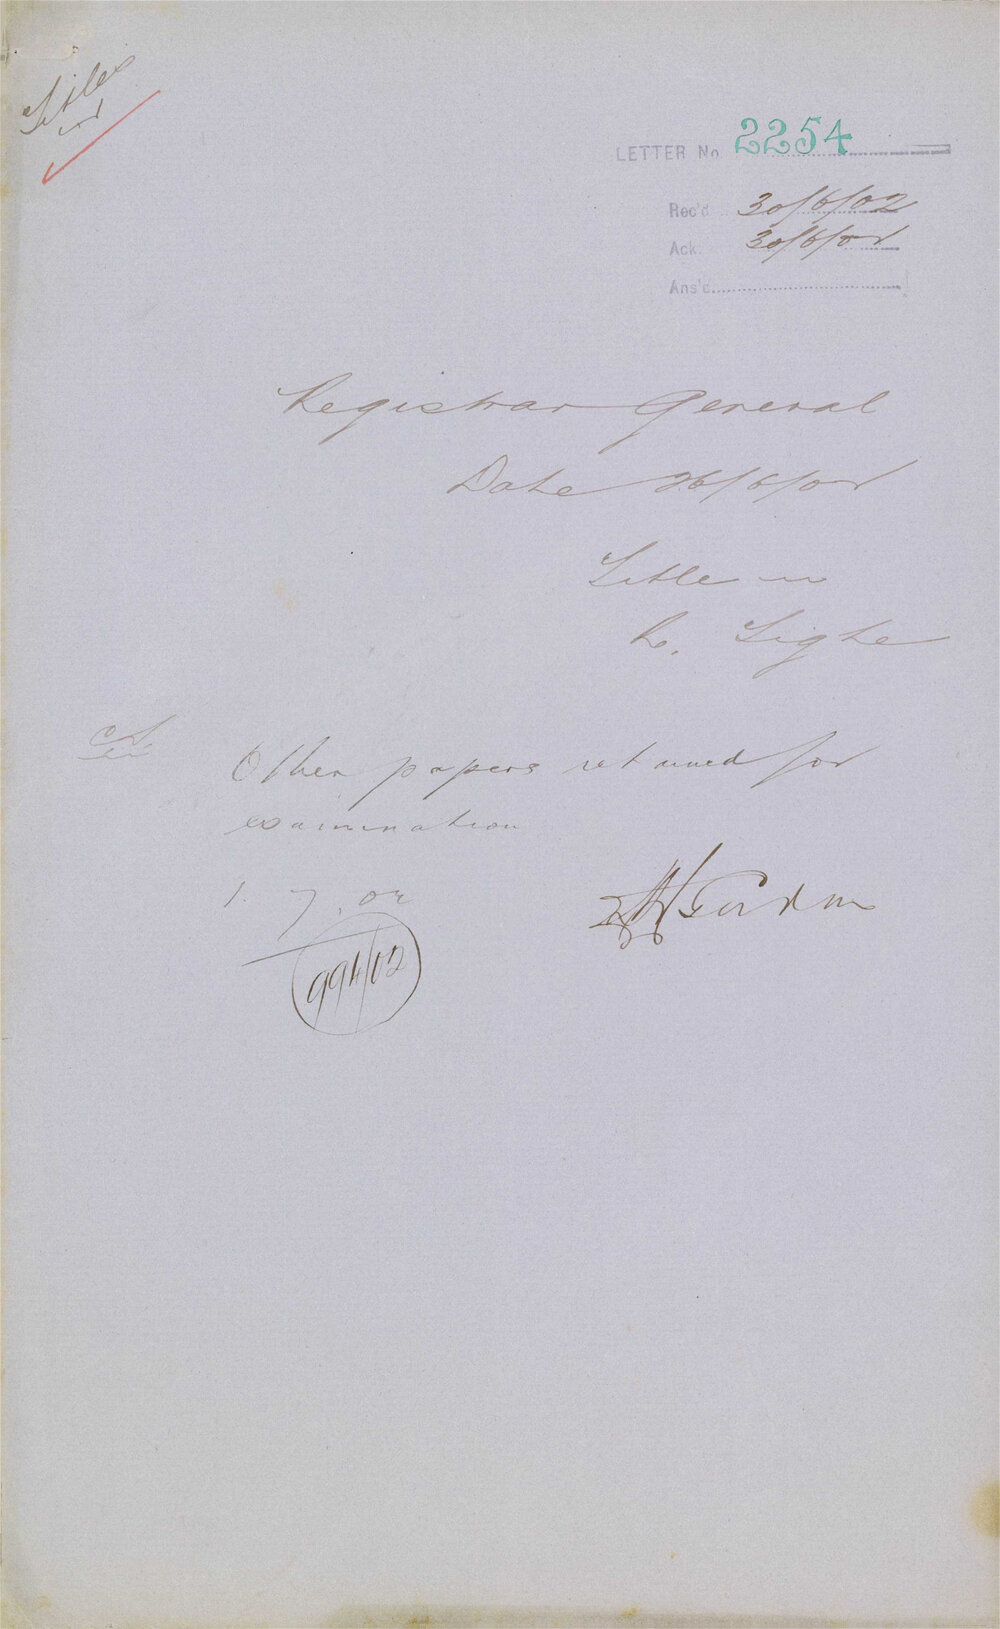 Titles
LETTER No 2254
Rec'd 30/6/02
Ack. 30/6/02
Ans'd
Registrar General
Date 26/6/02
Title in
R. Tighe
Other papers returned for
examination
1. 7. 02
Gordon
994/02